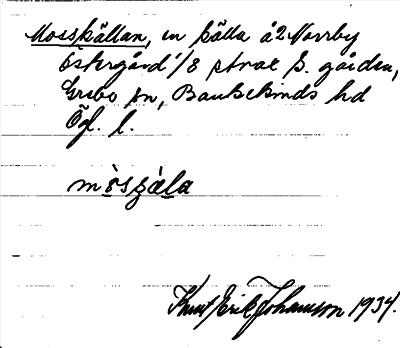 Mosskällan, en källa å Norrby
Östergård 1/8 strax S. gården,
Grebo sn, Bankekinds hd
Ögl. l.
Knut Erik Johansson 1934.